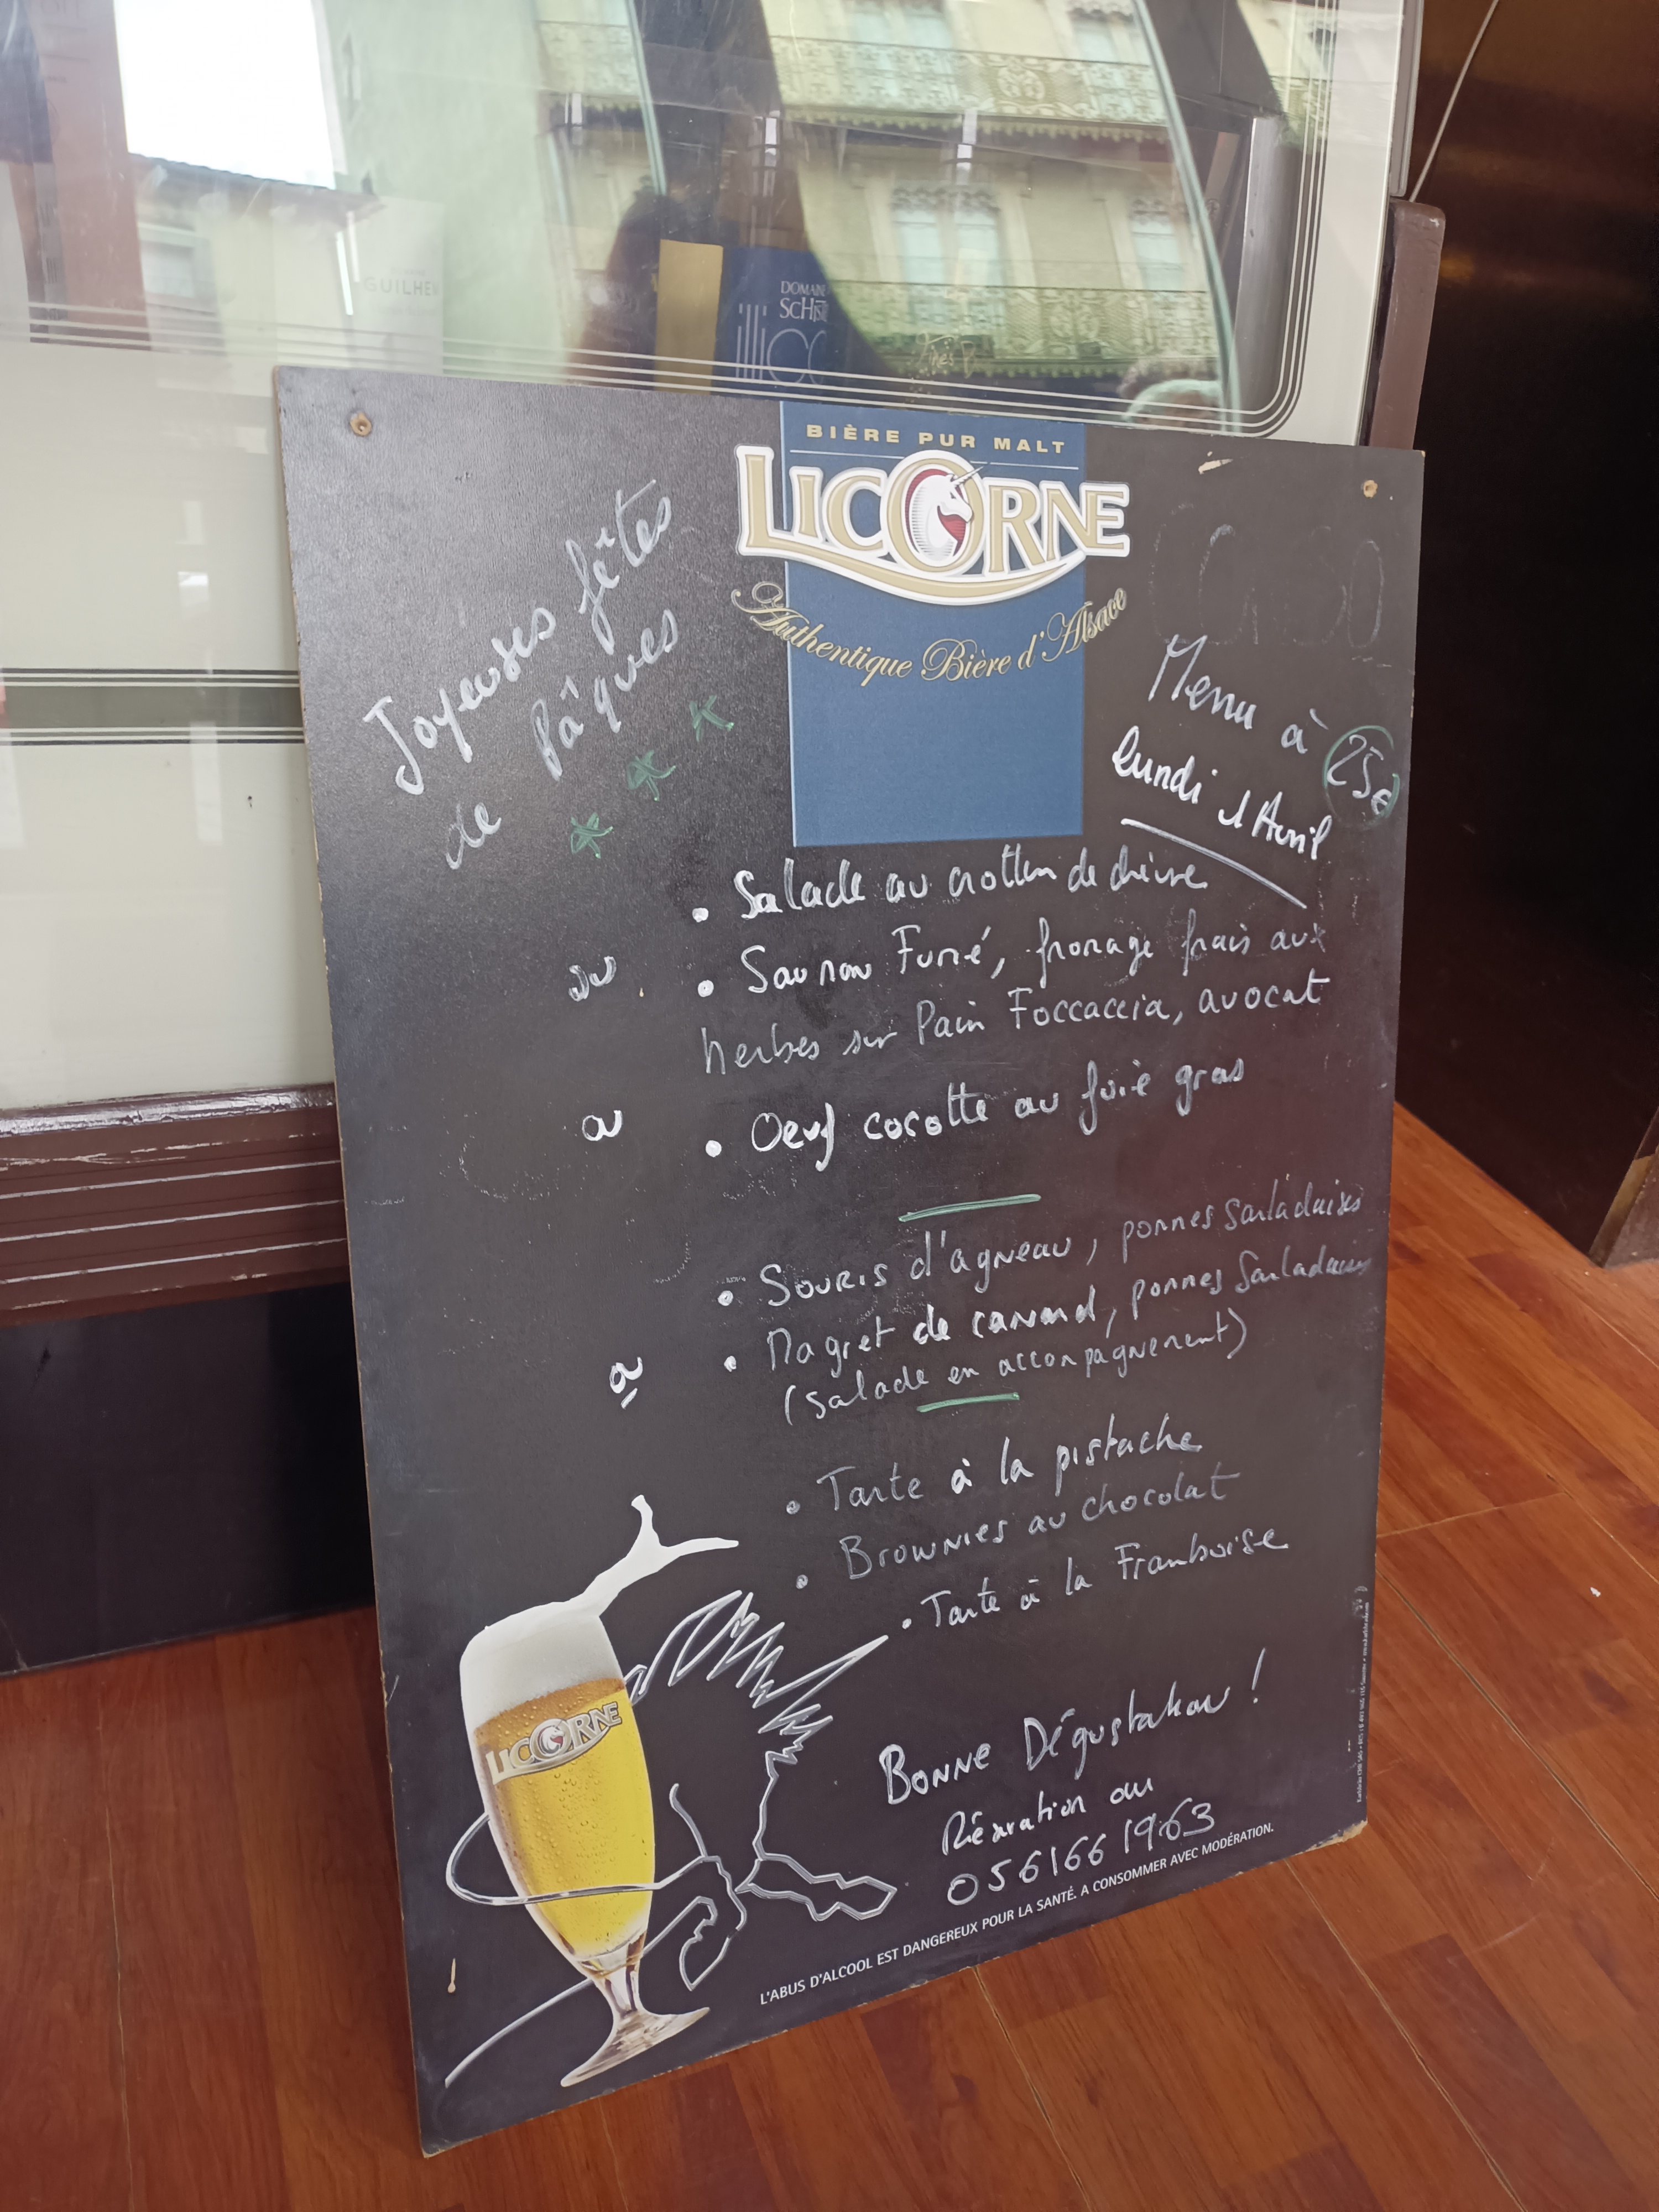 GUILHEM
DOMAIN
SCHIST
illico
BIÈRE PUR MALT
LICORNE
Authentique Bière d'Alsace
Joyeuses fêtes
de Pâques
Menu à 25€
lundi 1 Avril
• Salade au crottin de chèvre
ou
• Saumon Fumé, fromage frais aux
herbes sur Pain Foccaccia, avocat
ou
• Oeuf cocotte au foie gras
• Souris d'agneau, pommes Sarladaises
ou
• Magret de canard, pommes Sarladaises
(Salade en accompagnement)
• Tarte à la pistache
• Brownies au chocolat
• Tarte à la Framboise
LICORNE
Bonne Dégustation !
Réservation au
0561661963
L'ABUS D'ALCOOL EST DANGEREUX POUR LA SANTÉ. A CONSOMMER AVEC MODÉRATION.